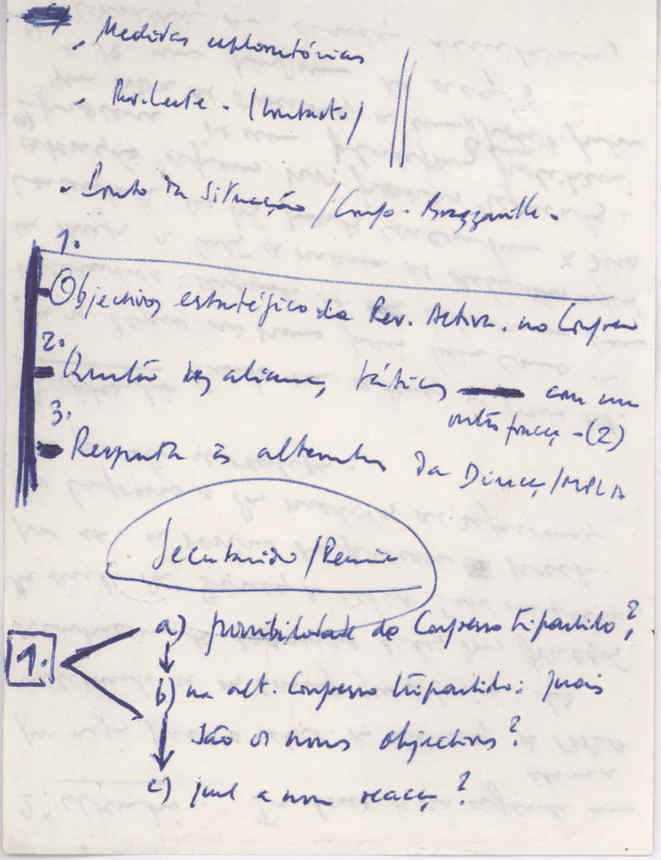 . Medidas exploratórias
. Rev. Leste - (Contacto)
. Ponto da Situação / Congo - Brazzaville -
1.
Objectivos estratégico da Rev. Activa. no Congresso
2.
Questão das alianças, tácticas — com um
outras forças - (2)
3.
Resposta às alternativas da Direcç/MPLA
Secretariado/Reunião
1.
a) possibilidade do Congresso tripartido?
b) na alt. Congresso tripartido: quais
são os novos objectivos?
c) qual a nova reacç?